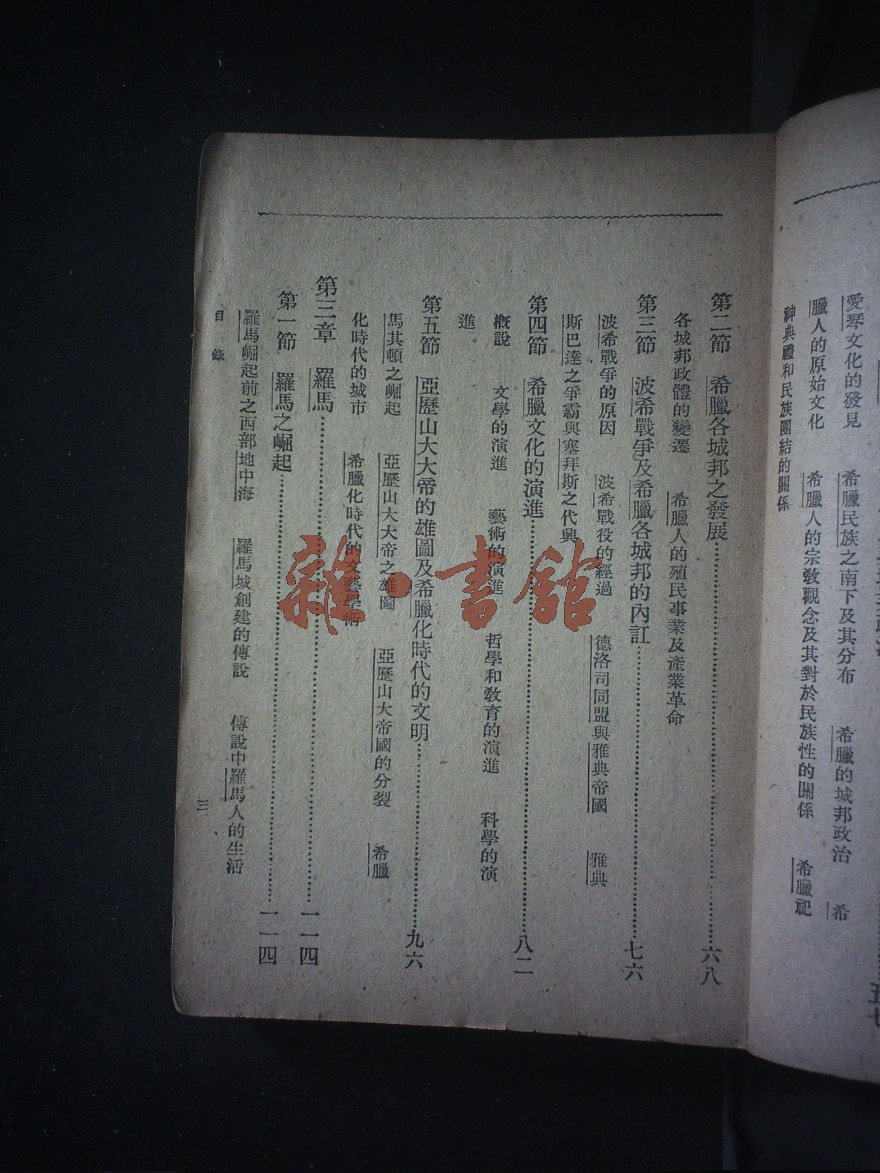 愛琴文化的發見　希臘民族之南下及其分布　希臘的城邦政治　希
臘人的原始文化　希臘人的宗教觀念及其對於民族性的關係　希臘祀
神典禮和民族團結的關係
第二節　希臘各城邦之發展……六八
各城邦政體的變遷　希臘人的殖民事業及產業革命
第三節　波希戰爭及希臘各城邦的內訌……七六
波希戰爭的原因　波希戰役的經過　德洛司同盟與雅典帝國　雅典
斯巴達之爭霸與塞拜斯之代興
第四節　希臘文化的演進……八二
概說　文學的演進　藝術的演進　哲學和教育的演進　科學的演
進
第五節　亞歷山大大帝的雄圖及希臘化時代的文明……九六
馬其頓之崛起　亞歷山大大帝之雄圖　亞歷山大帝國的分裂　希臘
化時代的城市　希臘化時代的文藝學術
第三章　羅馬……一一四
第一節　羅馬之崛起……一一四
羅馬崛起前之西部地中海　羅馬城創建的傳說　傳說中羅馬人的生活
目錄
三
雜·書館